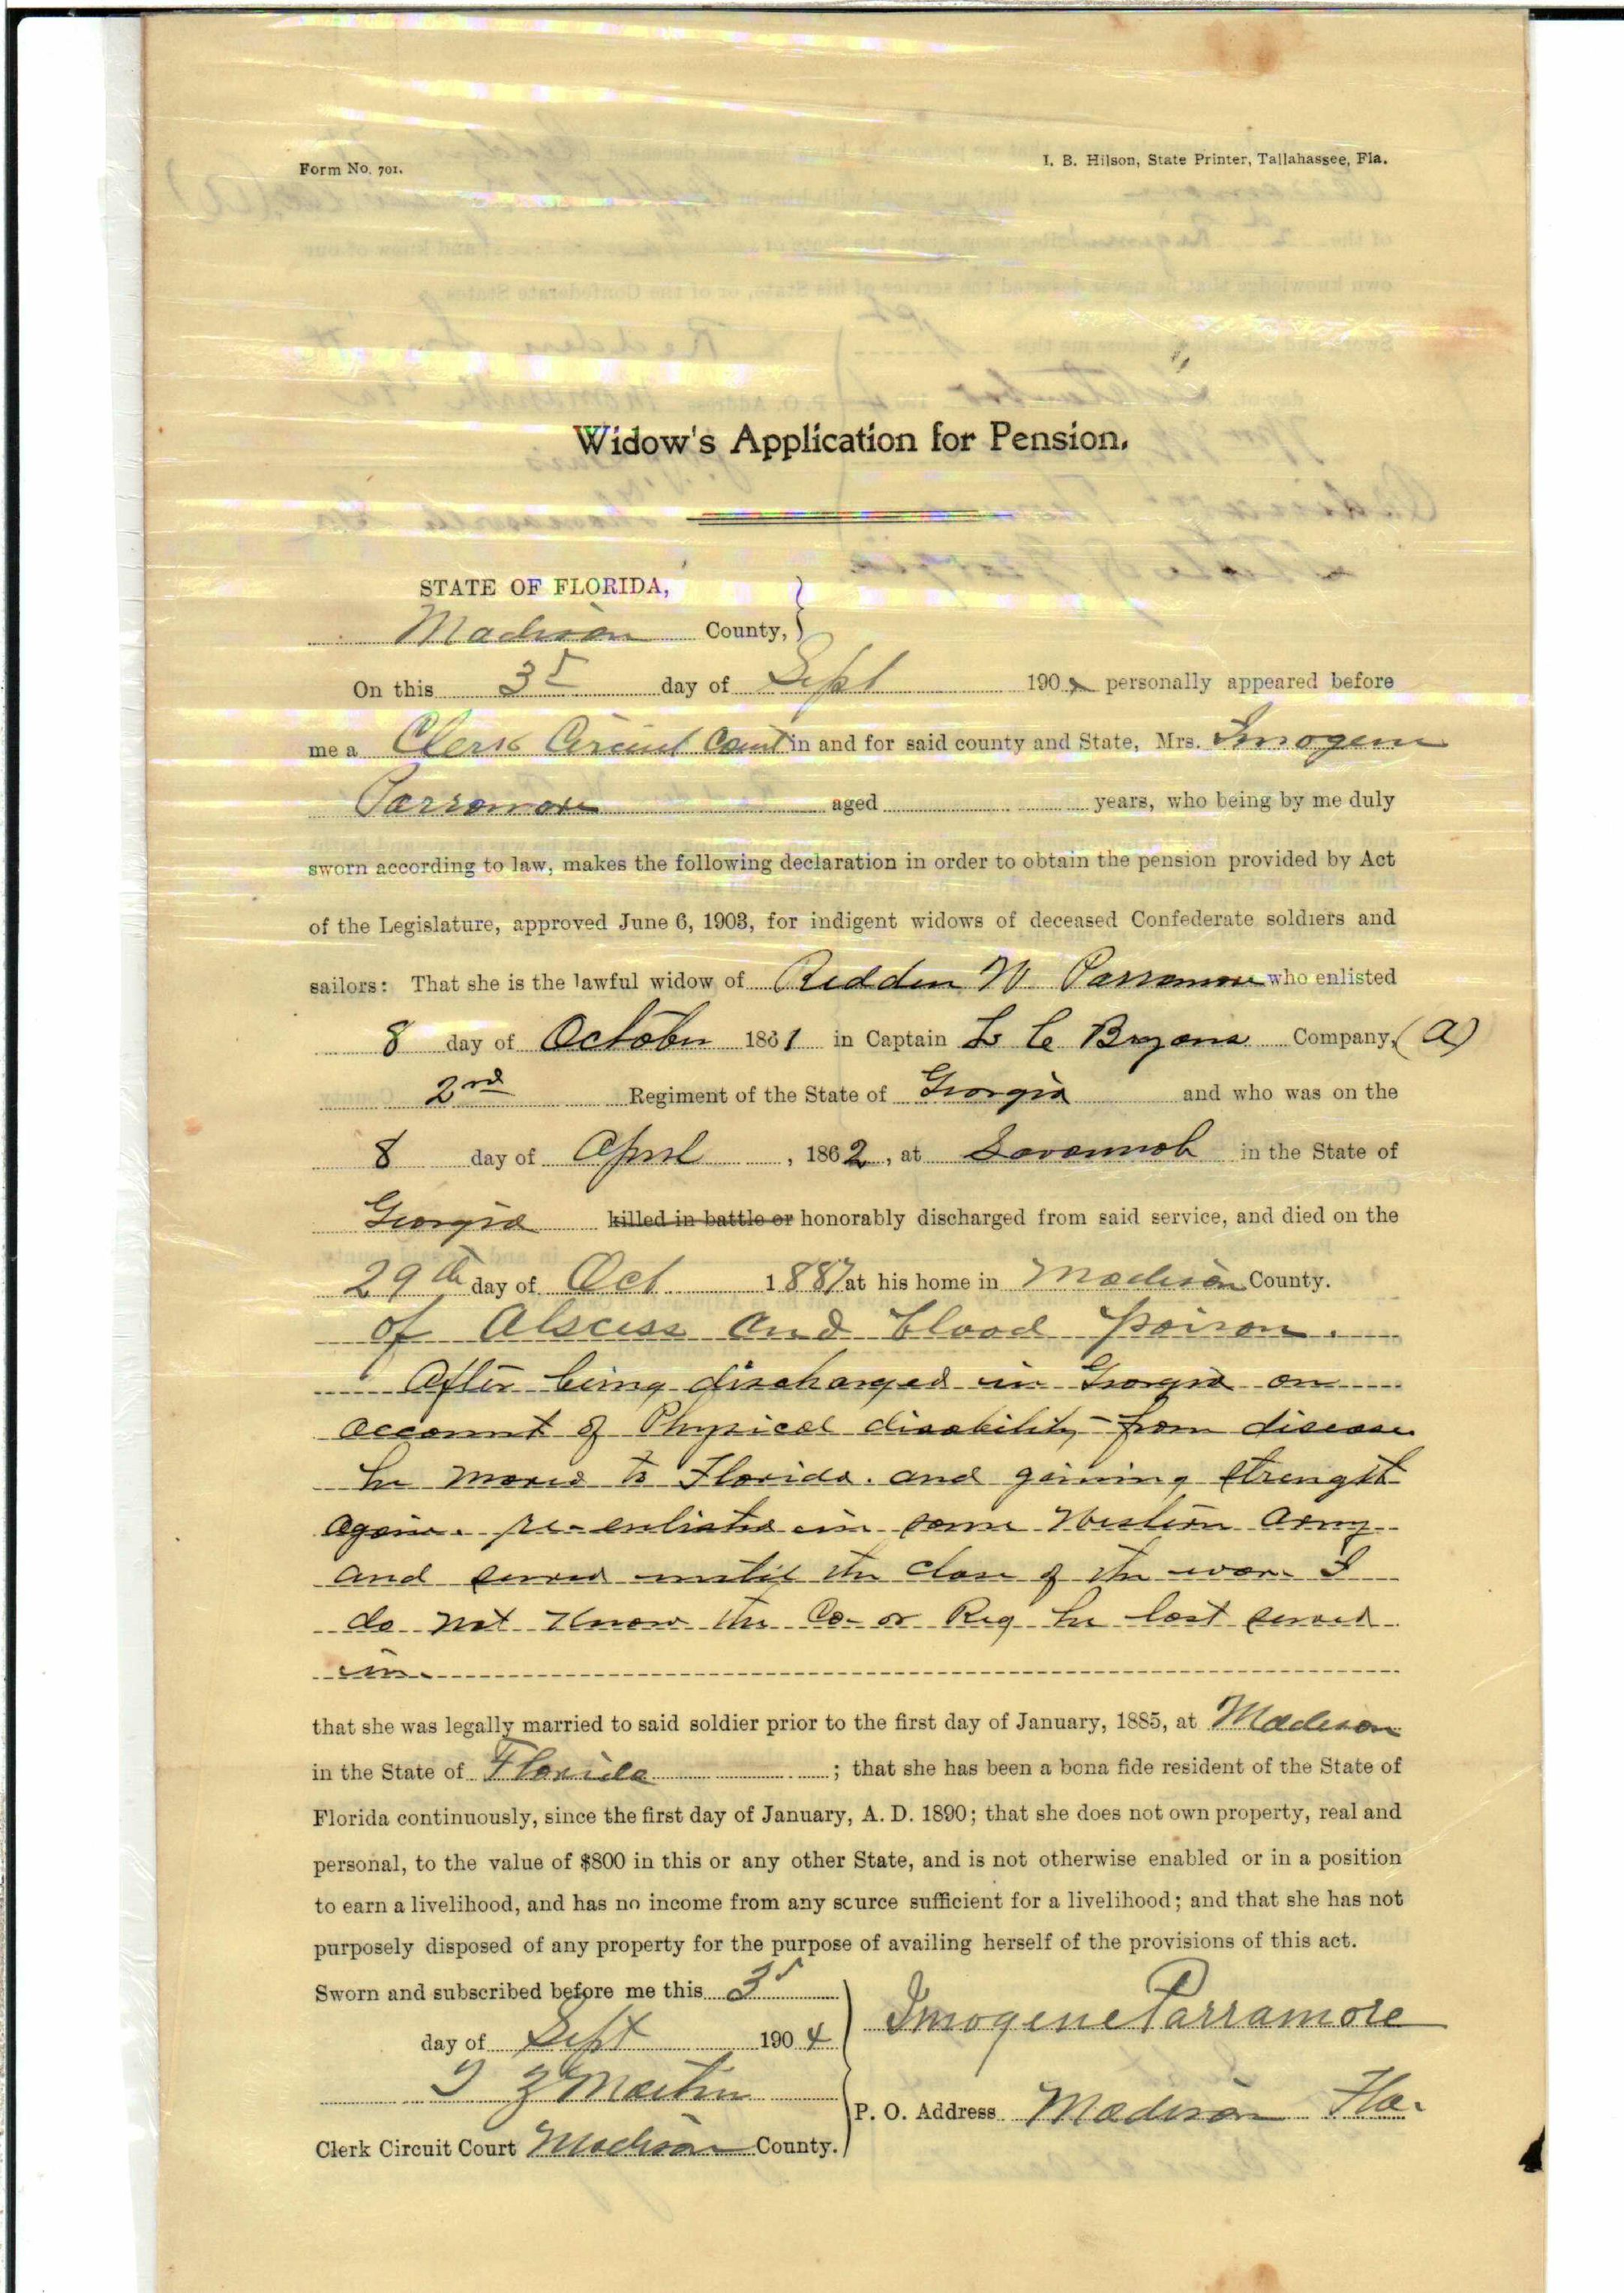 Form No. 701.
I. B. Hilson, State Printer, Tallahassee, Fla.
Widow's Application for Pension.
STATE OF FLORIDA,
Madison County,
On this 3 day of Sept 1904 personally appeared before
me a Clerk Circuit Court in and for said county and State, Mrs. Imogene
Parramore aged years, who being by me duly
sworn according to law, makes the following declaration in order to obtain the pension provided by Act
of the Legislature, approved June 6, 1903, for indigent widows of deceased Confederate soldiers and
sailors: That she is the lawful widow of Redden W Parramore who enlisted
8 day of October 1861 in Captain L C Bryans Company, (A)
2nd Regiment of the State of Georgia and who was on the
8 day of April, 1862, at Savannah in the State of
Georgia killed in battle or honorably discharged from said service, and died on the
29th day of Oct 1887 at his home in Madison County.
of Abscess and blood poison.
After being discharged in Georgia on
account of Physical disability from disease
he moved to Florida. and gaining strength
again. re-enlisted in some Western Army
and served until the close of the war. I
do not know the Co- or Reg he last served
in.
that she was legally married to said soldier prior to the first day of January, 1885, at Madison
in the State of Florida; that she has been a bona fide resident of the State of
Florida continuously, since the first day of January, A. D. 1890; that she does not own property, real and
personal, to the value of $800 in this or any other State, and is not otherwise enabled or in a position
to earn a livelihood, and has no income from any scurce sufficient for a livelihood; and that she has not
purposely disposed of any property for the purpose of availing herself of the provisions of this act.
Sworn and subscribed before me this 3
day of Sept 1904
Imogene Parramore
Z Martin
P. O. Address Madison Fla.
Clerk Circuit Court Madison County.